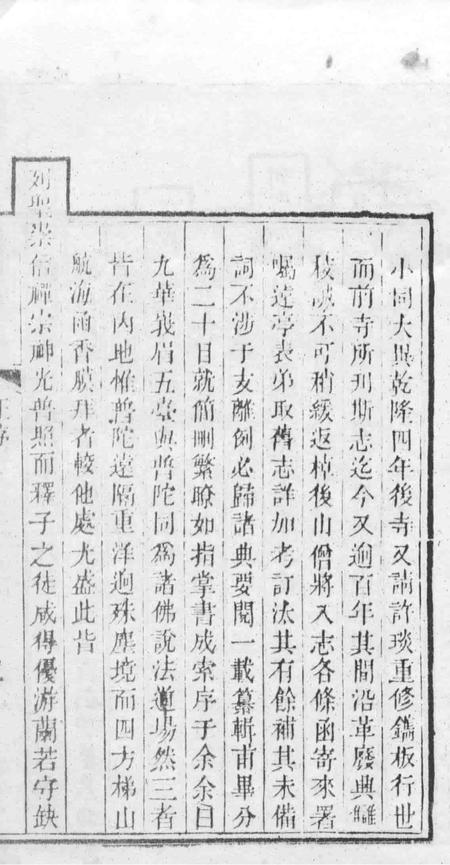 小同大異乾隆四年後寺又請許琰重修鐫板行世
而前寺所刊斯志迄今又逾百年其間沿革廢典雖
校誠不可稍緩返棹後山僧將入志各條函寄來署
囑達亭表弟取舊志詳加考訂汰其有餘補其未備
詞不涉于支離例必歸諸典要閱一載纂輯甫畢分
為二十目就簡刪繁瞭如指掌書成索序于余余曰
九華峩眉五臺與普陀同為諸佛說法道場然三者
皆在內地惟普陀遠隔重洋迥殊塵境而四方梯山
航海函香膜拜者較他處尤盛此皆
列聖崇信禪宗神光普照而釋子之徒咸得優游蘭若守缺